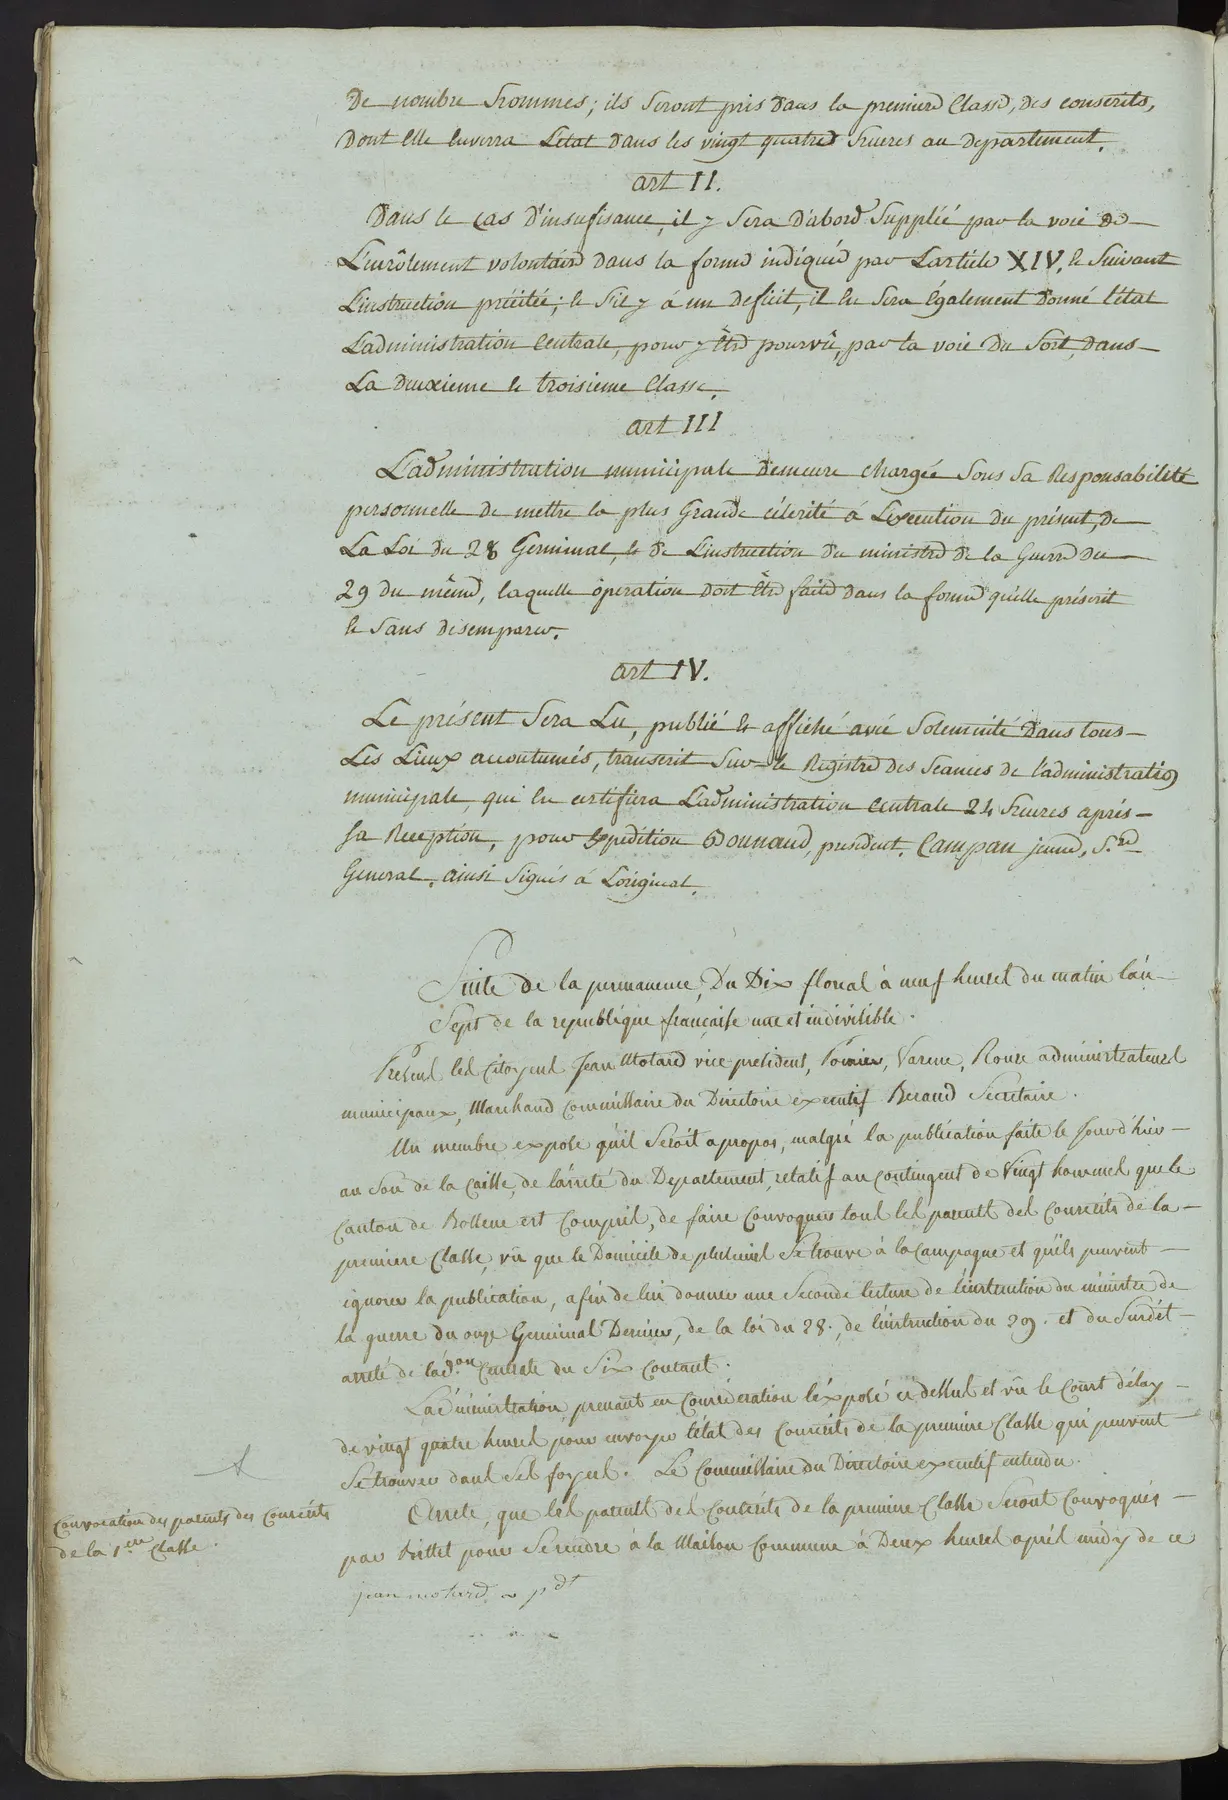 De nombre Hommes; ils Seront pris Dans la premiere Classe, des conscrits,
Dont Elle Enverra L'état Dans les vingt quatre heures au Departement.
art II.
Dans le Cas D'insufisance, il y Sera D'abord Supplié par la voie De
L'enrôlement volontaire Dans la forme indiquée par L'article XIV, et Suivant
L'instruction précitée; et S'il y á un deficit, il En Sera Également Donné l'état
L'administration Centrale, pour y Être pourvû, par la voie Du Sort, Dans
La Deuxieme et troisieme Classe.
art III
L'administration municipale Demeure chargée Sous Sa Responsabilité
personnelle De mettre la plus Grande célérité á L'execution Du présent, de
La Loi du 28 Germinal, et de L'instruction du ministre de la Guerre du
29 du même, laquelle ôperation doit Être faite Dans la forme qu'elle préscrit
et Sans Disemparer.
art IV.
Le présent Sera Lu, publié et affiché avec Solemnité Dans tous
Les Lieux accoutumés, transcrit Sur le Registre des Séances de l'administration
municipale, qui En certifiera L'administration Centrale 24 heures aprés
Sa Reception, pour Expedition Bonnaud, president, Campan jeune, S.re
General. ainsi Signés á L'original.
Suite de la permanence, Du Dix floreal à neuf heures du matin l'an
Sept de la republique française une et indivisible.
Presens les Citoyens Jean Motard vice president, Poirier, Varene, Roure administrateurs
municipaux, Marchand Commissaire du Directoire executif Beraud Secretaire.
Un membre expose qu'il Seroit apropos, malgré la publication faite le Jour d'hier
au Son de la Caisse, de l'arreté du Departement, relatif au Contingent de Vingt hommes que le
Canton de Bollene est Compris, de faire Convoquer tous les parents des Conscrits de la
premiere Classe, vû que le Domicile de plusieurs Se trouve à la Campagne et qu'ils peuvent
ignorer la publication, afin de lui donner une Seconde lecture de l'instruction du ministre de
la guerre du onze Germinal Dernier, de la loi du 28. de l'instruction du 29. et du Surdit
arreté de l'ad.on Centrale du Six Courant.
L'administration, prenant en Consideration l'exposé ci dessus et vû le Court délay
de vingt quatre heures pour envoyer l'état des Conscrits de la premiere Classe qui peuvent
Se trouver dans Ses foyers. Le Commissaire du Directoire executif entendu.
Convocation des parents des Conscrits
de la 1.ere Classe.
Arrete, que les parents des Conscrits de la premiere Classe Seront Convoqués
par billet pour Se rendre à la Maison Commune à Deux heures aprés midy de ce
jean motard v pdt